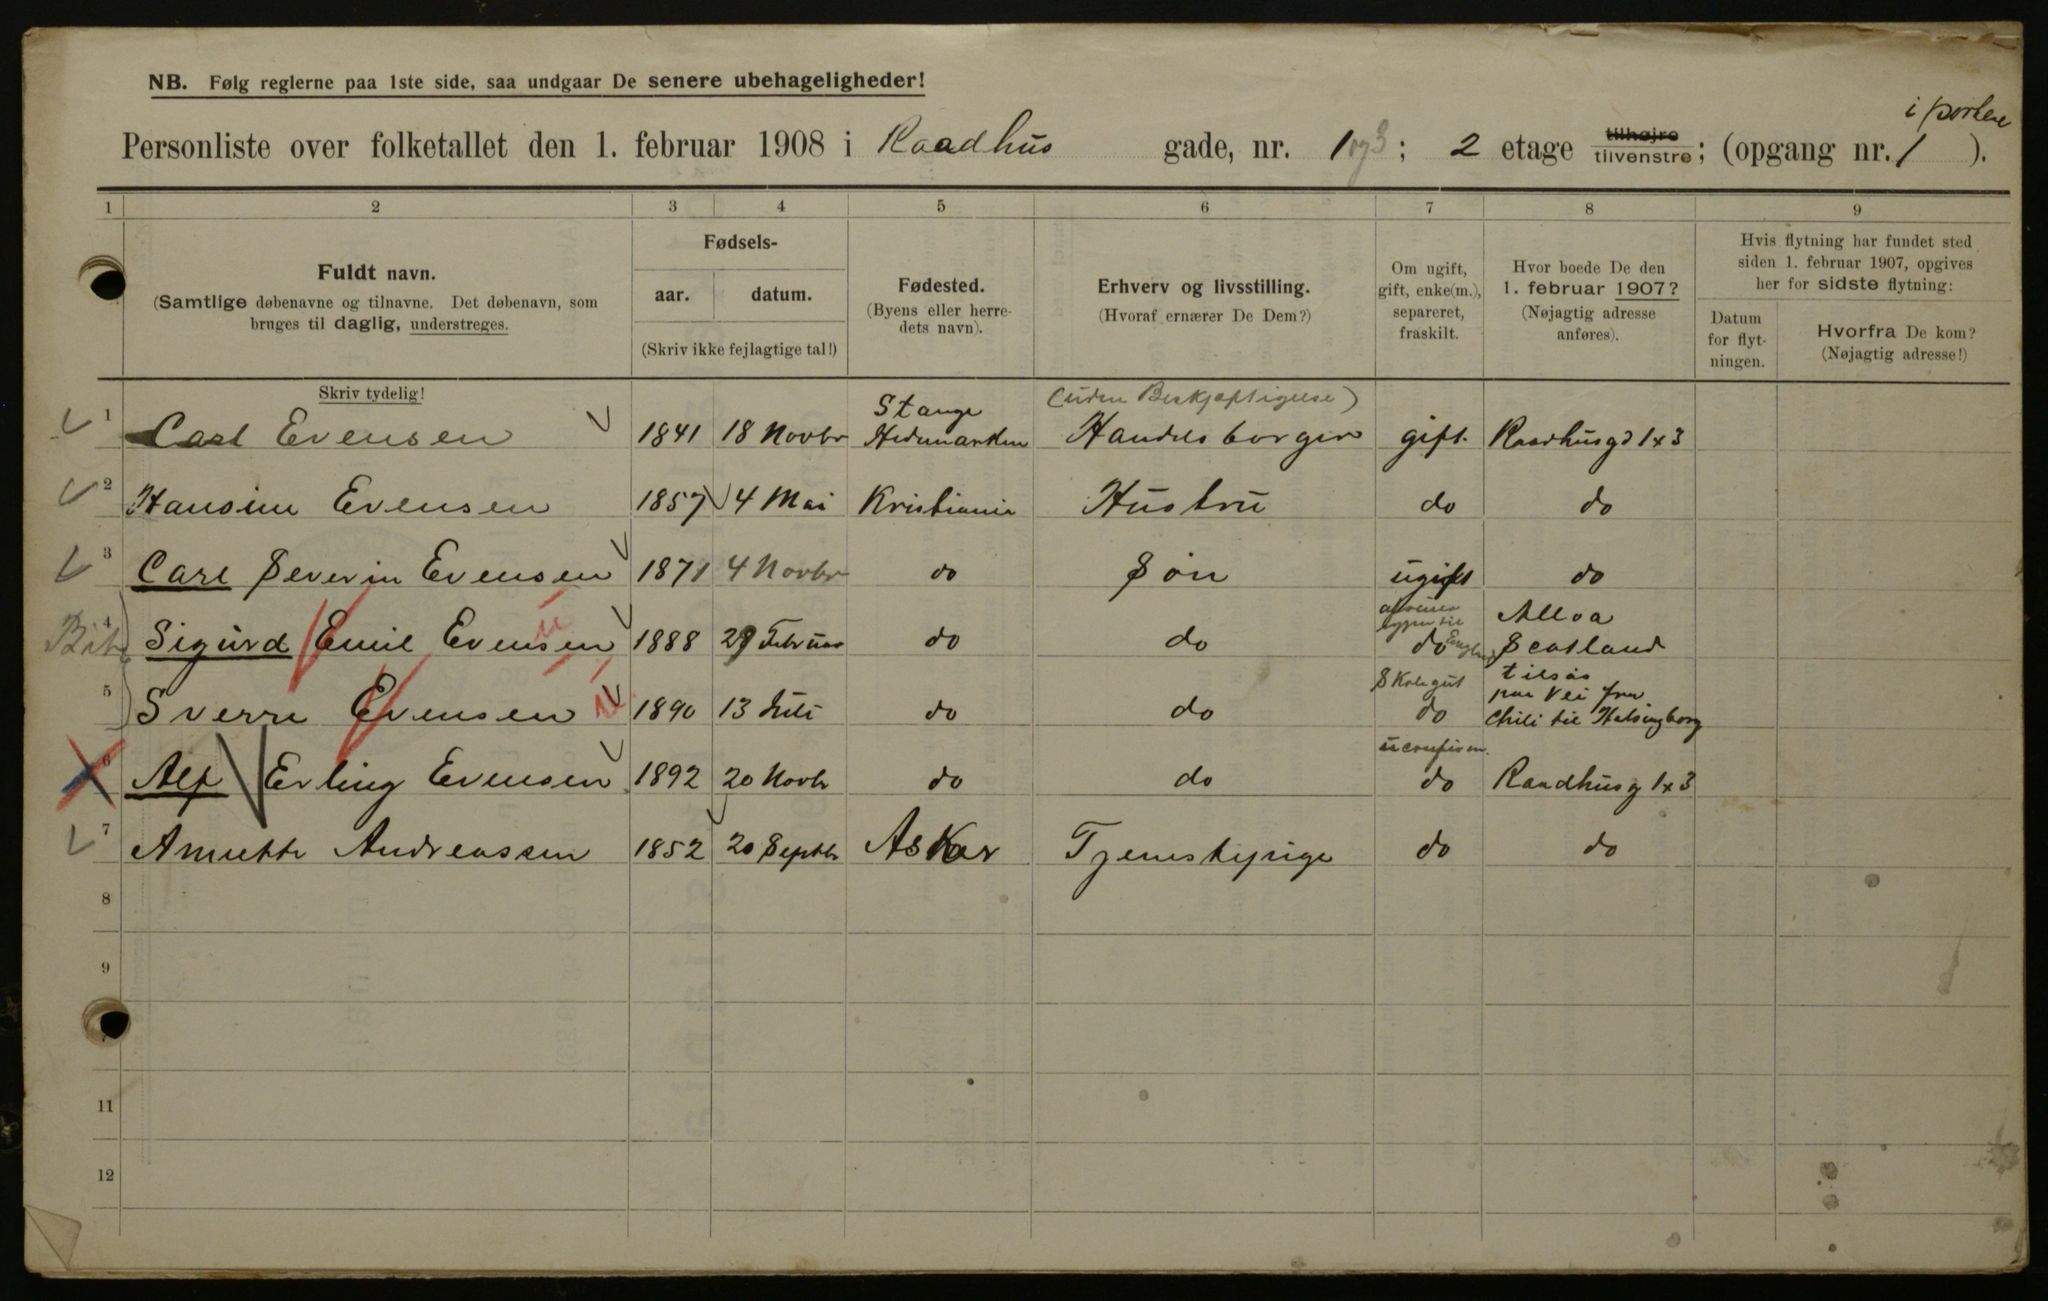 NB. Følg reglerne paa 1ste side, saa undgaar De senere ubehageligheder!
i porten
Personliste over folketallet den 1. februar 1908 i Raadhus gade, nr. 1 og 3; 2 etage tilhøjre tilvenstre; (opgang nr. 1 ).
1 2 3 4 5 6 7 8 9
Fuldt navn.
(Samtlige døbenavne og tilnavne. Det døbenavn, som
bruges til daglig, understreges.
Fødsels-
aar. datum.
(Skriv ikke fejlagtige tal!)
Fødested.
(Byens eller herre-
dets navn).
Erhverv og livsstilling.
(Hvoraf ernærer De Dem?)
Om ugift,
gift, enke(m.),
separeret,
fraskilt.
Hvor boede De den
1. februar 1907?
(Nøjagtig adresse
anføres).
Hvis flytning har fundet sted
siden 1. februar 1907, opgives
her for sidste flytning:
Datum
for flyt-
ningen.
Hvorfra De kom?
(Nøjagtig adresse!)
Skriv tydelig!
Stange (uden Beskjæftigelse)
1 Carl Evensen 1841 18 Novbr Hedemarken Handelsborger gift. Raadhusgd 1x3
2 Hansine Evensen 1857 4 Mai Kristiania Hustru do do
3 Carl Severin Evensen 1871 4 Novbr do Søn ugift do
Alloa
4 Sigurd Emil Evensen 1888 29 Februar do do do England Scotland
tilsøs
paa Vei fra
5 Sverre Evensen 1890 13 Juli do do do Chili til Helsingborg
6 Alf Erling Evensen 1892 20 Novbr do do do Raadhusg 1x3
7 Annette Andreassen 1852 20 Septbr Asker Tjenestepige do do
8
9
11
12